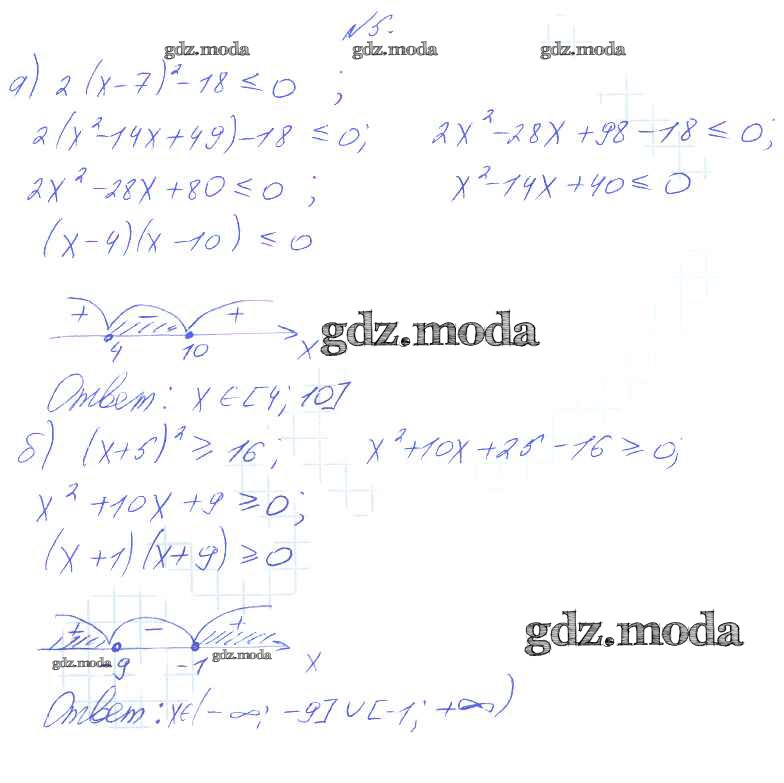 №5.
gdz.moda gdz.moda gdz.moda
а) 2(x-7)²-18≤0 ;
2(x²-14x+49)-18≤0; 2x²-28x+98-18≤0;
2x²-28x+80≤0 ; x²-14x+40≤0
(x-4)(x-10)≤0
+ - +
gdz.moda
4 10 x
Ответ: x∈[4; 10]
б) (x+5)²≥16; x²+10x+25-16≥0;
x²+10x+9≥0;
(x+1)(x+9)≥0
+ - +
gdz.moda
gdz.moda gdz.moda
-9 -1 x
Ответ: x∈(-∞; -9]∪[-1; +∞)